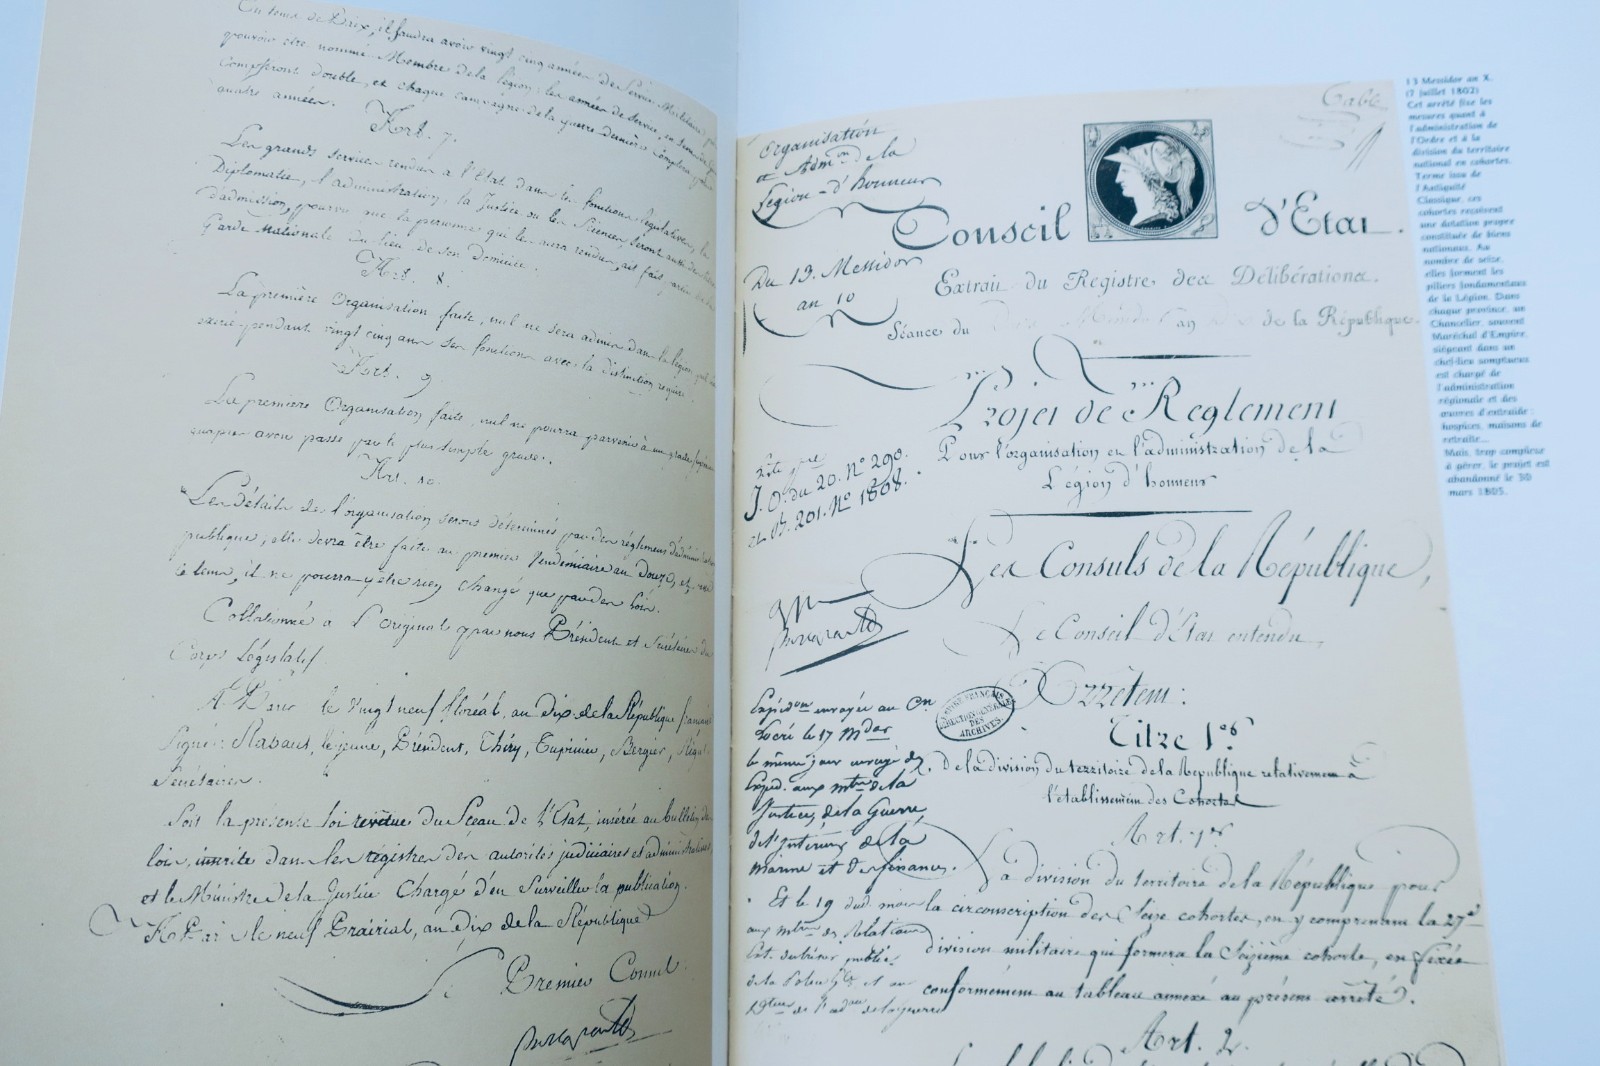 En tems de Paix, il faudra avoir vingt cinq années de Service Militaire pour
pouvoir etre nommé Membre de la légion: les années de service, en tems de
Compteront double, et chaque campagne de la guerre dernière comptera pour
quatre années.
Art. 7.
Les grands services rendus à l'Etat dans les fonctions législatives, la
Diplomatie, l'administration, la Justice ou les Sciences seront aussi des
d'admission, pourvu que la personne qui les aura rendus, ait fait partie de la
Garde Nationale du lieu de son domicile.
Art. 8.
La première Organisation faite, nul ne sera admis dans la légion, qu'il
exercé pendant vingt cinq ans ses fonctions avec la distinction requise.
Art. 9.
La première Organisation faite, nul ne pourra parvenir à un grade
qu'après avoir passé par le plus simple grade.
Art. 10.
Les Détails de l'organisation seront déterminés par des réglemens d'administration
publique, elle devra être faite au premier Vendémiaire an Douze, et
ce tems, il ne pourra y être rien changé que par des loix.
Collationné à l'original par nous Président et Secrétaires du
Corps Législatif.
A Paris le vingt neuf floréal, an Dix de la République française
Signé: Rabaut, le jeune, Président, Thiry, Tupinier, Bergier, Rigal
Secrétaires.
Soit la présente loi revêtue du Sceau de l'Etat, insérée au bulletin des
loix, inscrite dans les régistres des autorités judiciaires et administratives
et le Ministre de la Justice Chargé d'en Surveiller la publication.
A Paris le neuf Prairial, an Dix de la République
Premier Consul
Bonaparte
Table
Organisation
et Admon de la
Légion-d'honneur
Conseil d'Etat.
Du 13. Messidor
an 10
Extrait du Registre des Délibérations.
Séance du an de la République.
Projet de Reglement
Pour l'organisation et l'administration de la
Légion d'honneur
J. O. du 20. N° 290.
et B. 201. N° 1808.
Les Consuls de la République,
Bonaparte
Le Conseil d'Etat entendu,
Arrêtent:
ARCHIVES FRANÇAISES
DIRECTION GENERALE
DES
ARCHIVES.
Titre 1er
De la division du territoire de la République relativement à
l'établissement des Cohortes
Art. 1er
La division du territoire de la République pour
la circonscription des Seize cohortes, en y comprenant la 27e
division militaire qui formera la Seizième cohorte, est fixée
conformément au tableau annexé au présent arrêté.
Art. 2.
Expédon envoyée au Cn
Locré le 17 Mdor
le même jour envoyé des
Expéd. aux mtres de la
Justice, de la Guerre,
de l'Intérieur de la
marine et des finances.
Et le 19 dud. mois
aux mtres des Relations
Ext. du trésor public
de la Police Gle et au
Dteur de l'adon de la guerre
13 Messidor an X.
(7 juillet 1802)
Cet arrêté fixe les
mesures quant à
l'administration de
l'Ordre et à la
division du territoire
national en cohortes.
Terme issu de
l'Antiquité
Classique, ces
cohortes reçoivent
une dotation propre
constituée de biens
nationaux. Au
nombre de seize,
elles forment les
piliers fondamentaux
de la Légion. Dans
chaque province, un
Chancelier, souvent
Maréchal d'Empire,
siégeant dans un
chef-lieu somptueux
est chargé de
l'administration
régionale et des
œuvres d'entraide :
hospices, maisons de
retraite...
Mais, trop complexe
à gérer, le projet est
abandonné le 30
mars 1805.